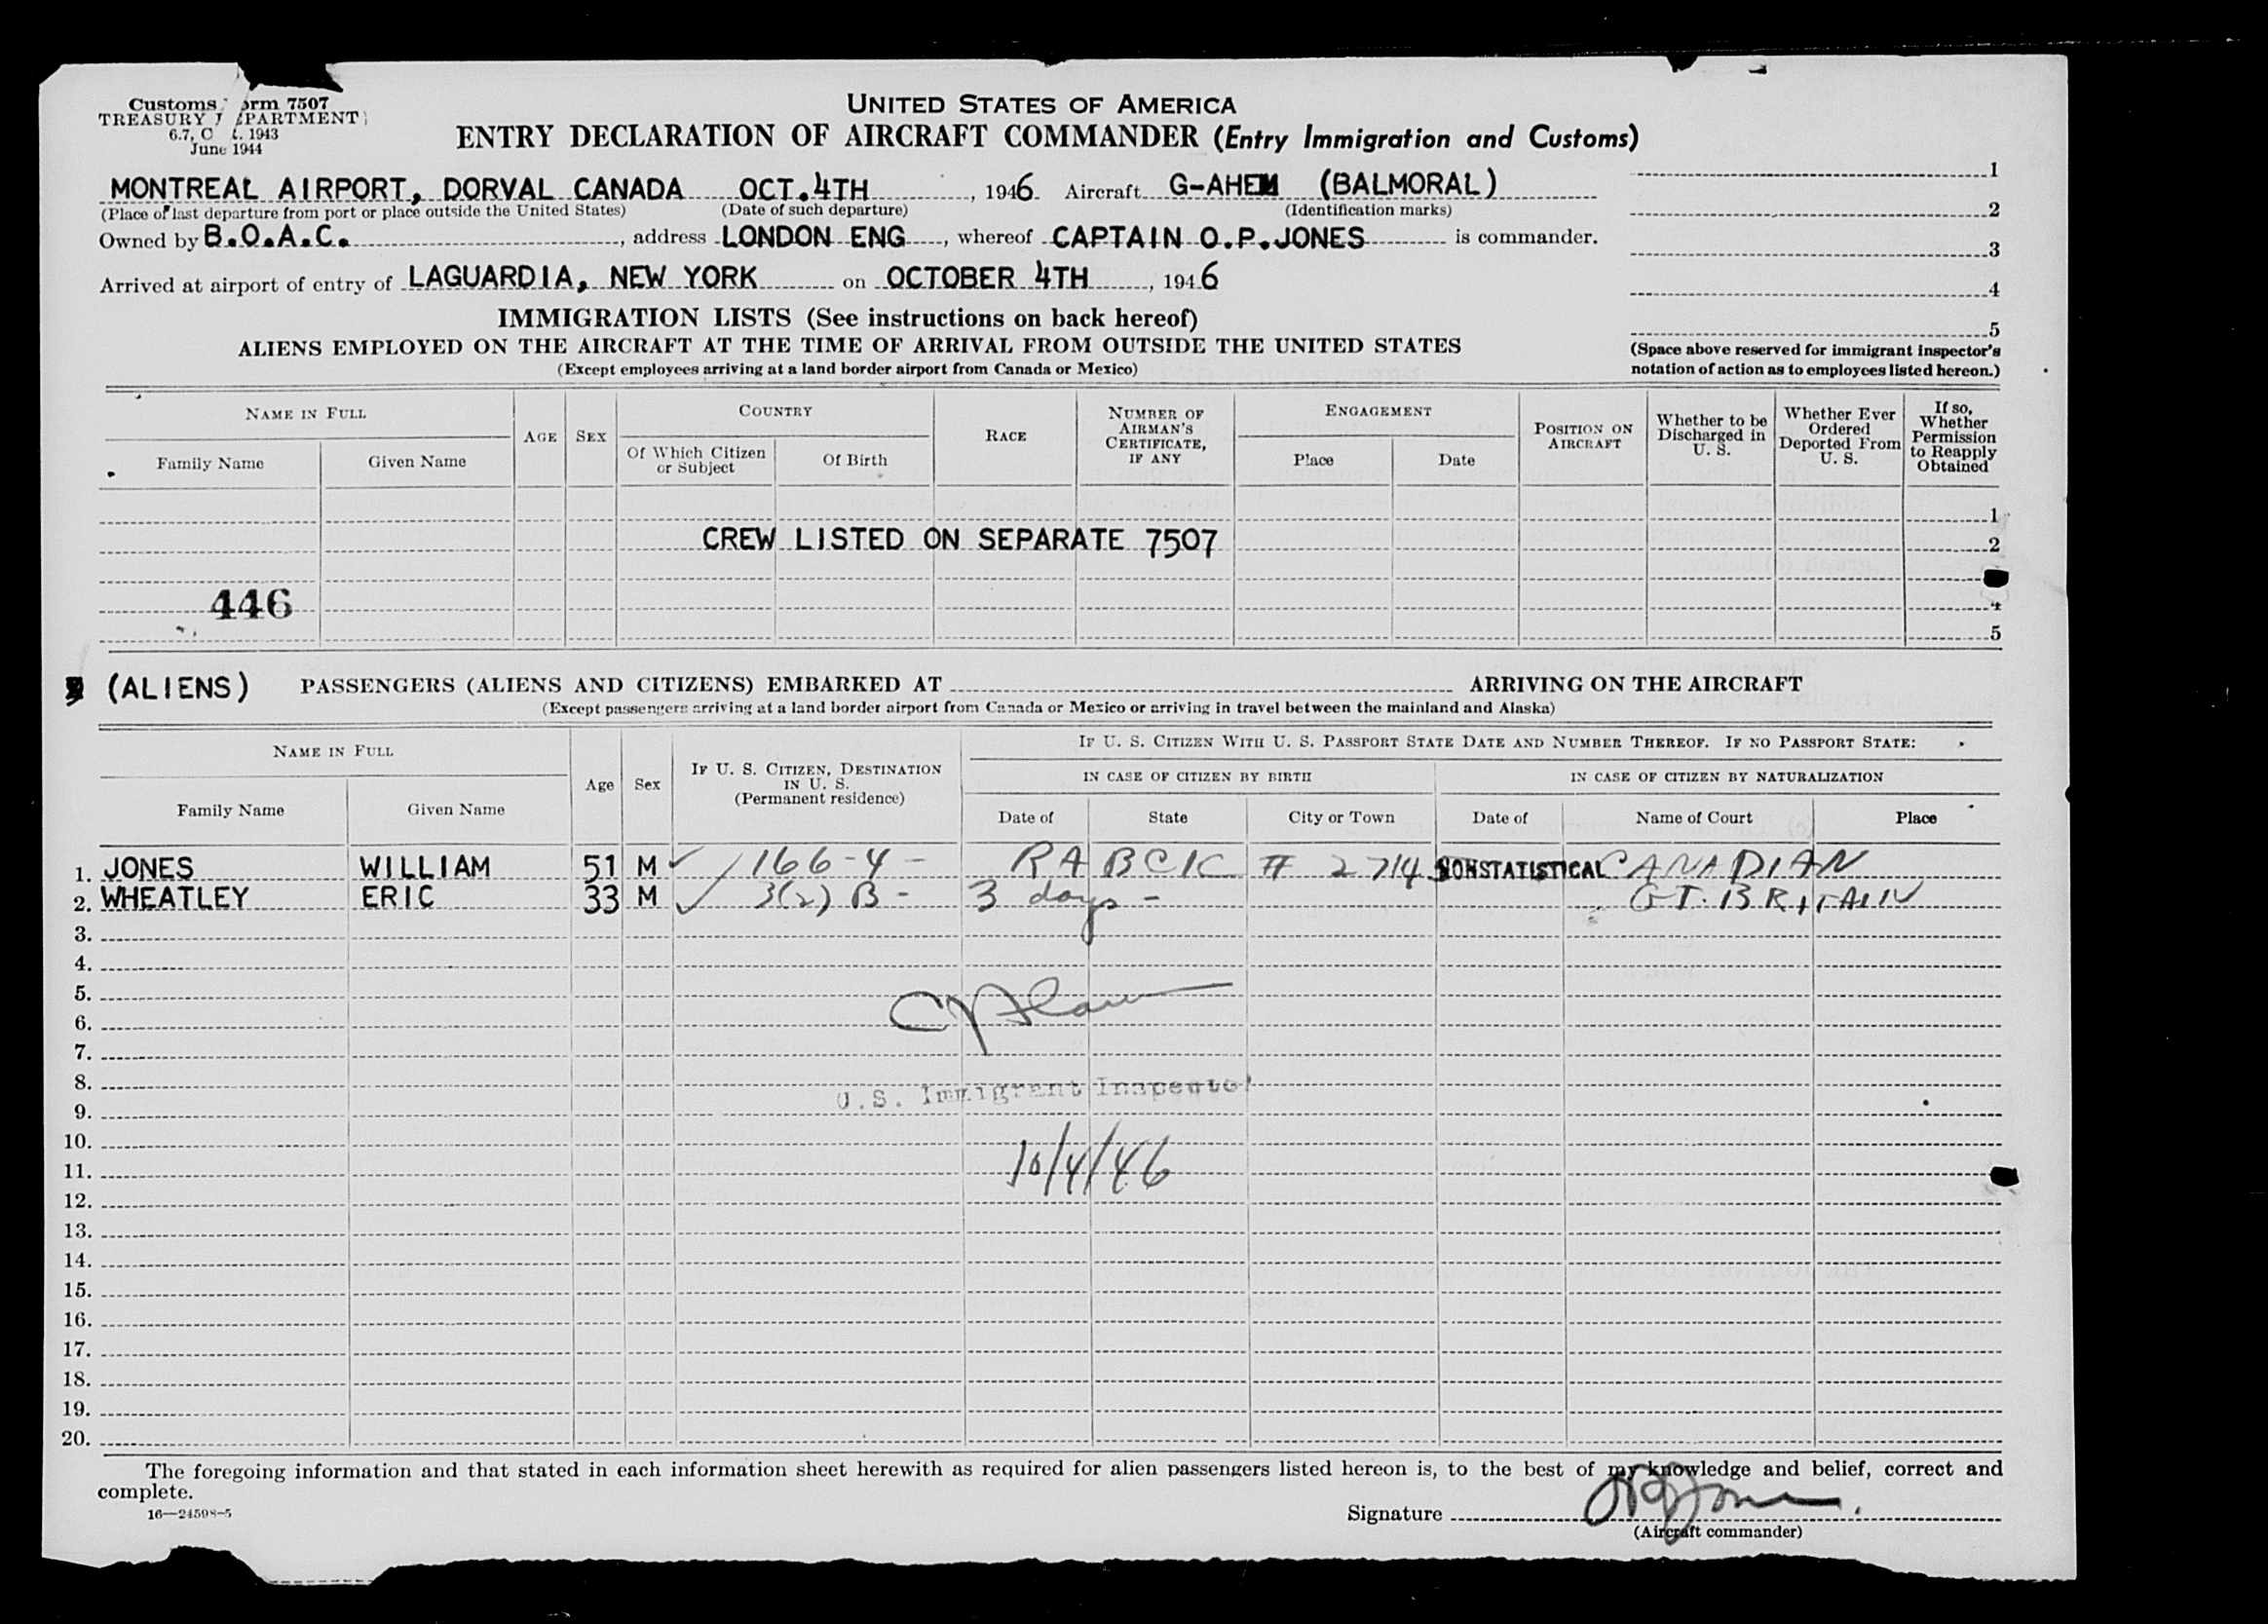 Customs Form 7507
TREASURY DEPARTMENT
6.7, C. 1943
June 1944
UNITED STATES OF AMERICA
ENTRY DECLARATION OF AIRCRAFT COMMANDER (Entry Immigration and Customs)
MONTREAL AIRPORT, DORVAL CANADA OCT. 4TH, 1946 Aircraft G-AHEM (BALMORAL)
(Place of last departure from port or place outside the United States) (Date of such departure) (Identification marks)
Owned by B.O.A.C., address LONDON ENG, whereof CAPTAIN O.P. JONES is commander.
Arrived at airport of entry of LAGUARDIA, NEW YORK on OCTOBER 4TH, 1946
1
2
3
4
5
(Space above reserved for immigrant inspector's
notation of action as to employees listed hereon.)
IMMIGRATION LISTS (See instructions on back hereof)
ALIENS EMPLOYED ON THE AIRCRAFT AT THE TIME OF ARRIVAL FROM OUTSIDE THE UNITED STATES
(Except employees arriving at a land border airport from Canada or Mexico)
NAME IN FULL
Family Name Given Name
AGE SEX
COUNTRY
Of Which Citizen or Subject Of Birth
RACE
NUMBER OF AIRMAN'S CERTIFICATE, IF ANY
ENGAGEMENT
Place Date
POSITION ON AIRCRAFT
Whether to be Discharged in U. S.
Whether Ever Ordered Deported From U. S.
If so, Whether Permission to Reapply Obtained
1
CREW LISTED ON SEPARATE 7507 2
446 4
5
(ALIENS) PASSENGERS (ALIENS AND CITIZENS) EMBARKED AT ARRIVING ON THE AIRCRAFT
(Except passengers arriving at a land border airport from Canada or Mexico or arriving in travel between the mainland and Alaska)
NAME IN FULL
Family Name Given Name
Age Sex
IF U. S. CITIZEN, DESTINATION IN U. S. (Permanent residence)
IF U. S. CITIZEN WITH U. S. PASSPORT STATE DATE AND NUMBER THEREOF. IF NO PASSPORT STATE:
IN CASE OF CITIZEN BY BIRTH IN CASE OF CITIZEN BY NATURALIZATION
Date of State City or Town Date of Name of Court Place
1. JONES WILLIAM 51 M 166-4- RABCIC # 2714 NONSTATISTICAL CANADIAN
2. WHEATLEY ERIC 33 M 3(2) B- 3 days - GT. BRITAIN
3.
4.
5.
6.
7.
8.
U.S. Immigrant Inspector
9.
10.
11. 10/4/46
12.
13.
14.
15.
16.
17.
18.
19.
20.
The foregoing information and that stated in each information sheet herewith as required for alien passengers listed hereon is, to the best of my knowledge and belief, correct and
complete.
16—24598-5
Signature O P Jones.
(Aircraft commander)